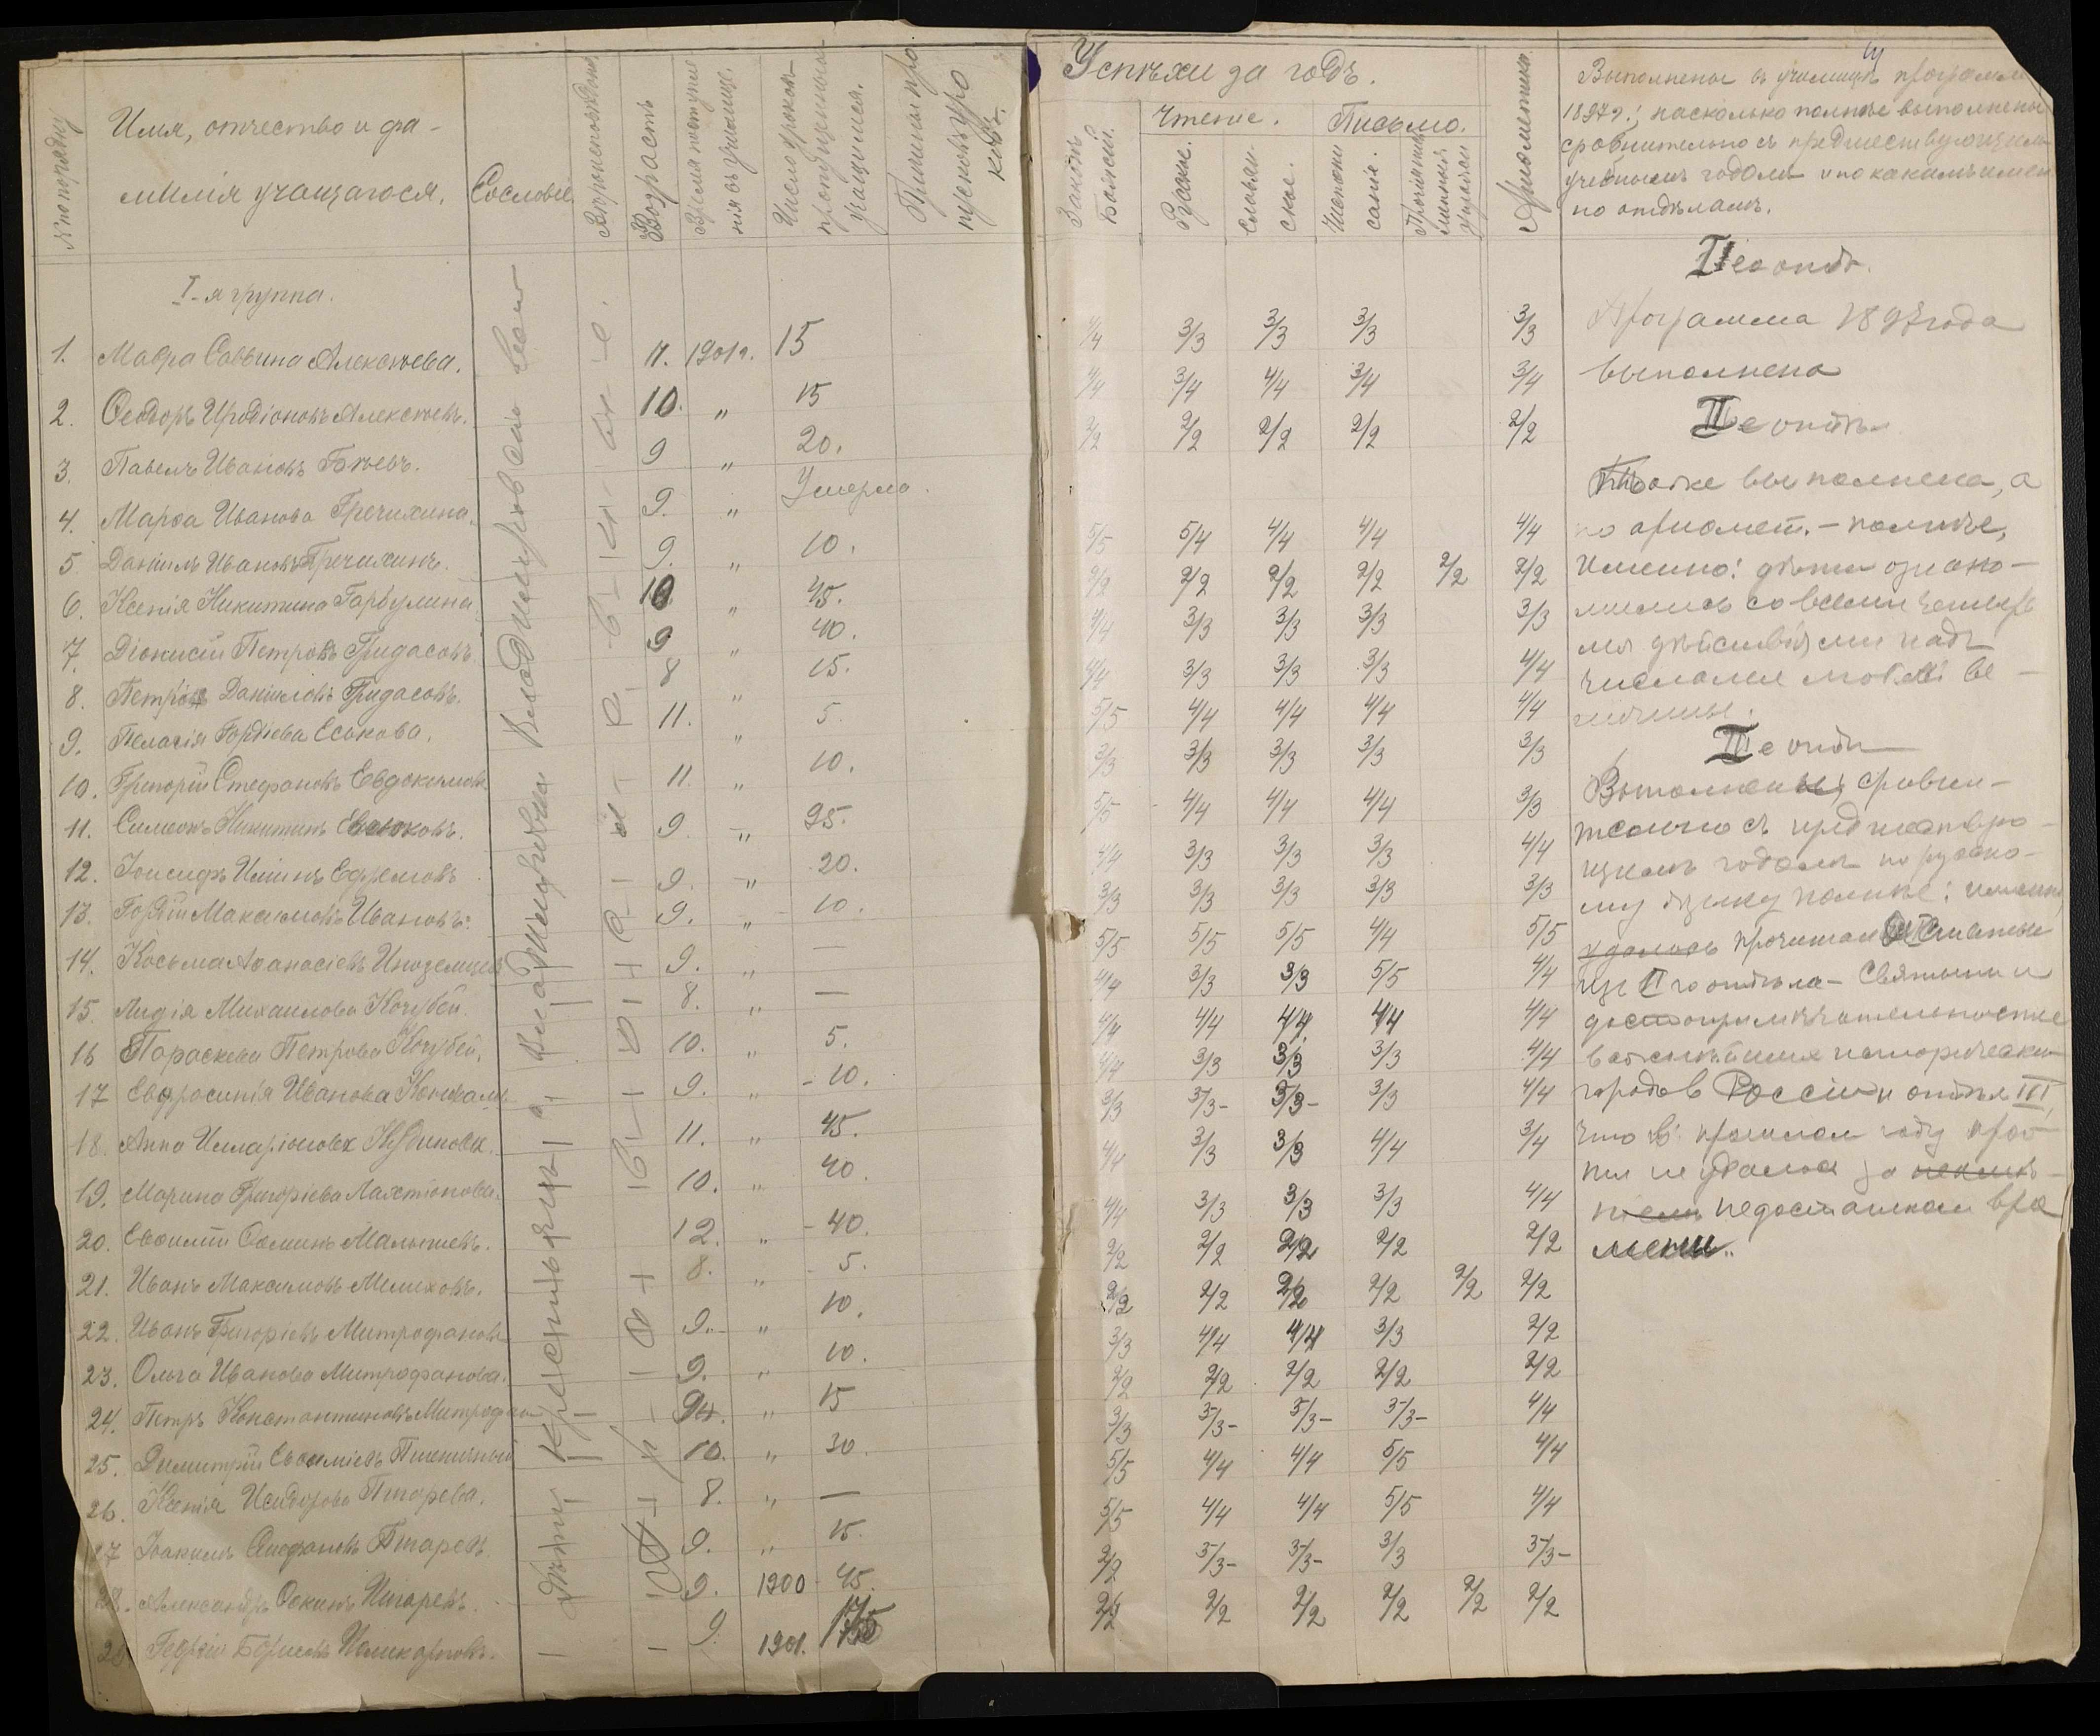 № по порядку
Имя, отчество и фа-
милія учащагося.
Сословіе
Вѣроисповѣданіе
Возрастъ
Время поступле
нія въ училище.
Число уроковъ
пропущенныхъ
учащимся.
Причины про
пусковъ уро
ковъ.
I-я группа.
Дѣти крестьянъ
Владимировской
1. Мавра Саввина Алексѣева. 11. 1901г. 15
2. Ѳеодоръ Иродіоновъ Алексѣевъ. 10. " 15
3. Павелъ Ивановъ 9 " 20.
4. Марѳа Иванова Гречихина. 9. " Умерла.
5 Даніилъ Ивановъ Гречихинъ. 9. " 10.
6. Ксенія Никитина Гарбулина. 10. " 45.
7. Діонисій Петровъ Гридасовъ. 9 " 40.
8. Петръ Даніиловъ Гридасовъ. 8 " 15.
9. Пелагія Гордіева Есакова. 11. " 5.
10. Григорій Стефановъ Евдокимовъ 11. " 10.
11. Симеонъ Никитинъ Евсюковъ. 9. " 25.
12. Іосифъ Ильинъ Ефремовъ 9. " 20.
13. Гордѣй Максимовъ Ивановъ. 9. " 10.
14. Косьма Аѳанасіевъ Иноземцевъ 9. " —
15. Лидія Михаилова Кочубей. 8. " —
16 Параскева Петрова Кочубей. 10. " 5.
17 Евфросинія Иванова 9. " 10.
18. Анна Илларіонова 11. " 45.
19. Марина Григоріева Лахтіонова. 10. " 40.
20. Евѳимій Ѳоминъ Малышевъ. 12. " 40.
21. Иванъ Максимовъ Мелиховъ. 8. " 5.
22. Иванъ Григоріевъ Митрофановъ 9. " 10.
23. Ольга Иванова Митрофанова. 9. " 10.
24. Петръ Константиновъ Митрофан 9 " 15
25. Димитрій Евѳиміевъ Пшеничный 10. " 30.
26. Ксенія Исидорова Пигарева. 8. " —
27 Іоакимъ Стефановъ Пигаревъ. 9. " 15.
28. Александръ Ѳоминъ Пигаревъ. 9. 1900 45.
29. Георгій Борисовъ Поликарповъ. 9. 1901.
Успѣхи за годъ.
Законъ
Божій.
Чтеніе.
Русское.
Славян-
ское.
Письмо.
Чистопи
саніе.
Ариѳметика.
4/4 3/3 3/3 3/3 3/3
4/4 3/4 4/4 3/4 3/4
2/2 2/2 2/2 2/2 2/2
5/5 5/4 4/4 4/4 4/4
2/2 2/2 2/2 2/2 2/2 2/2
4/4 3/3 3/3 3/3 3/3
4/4 3/3 3/3 3/3 4/4
5/5 4/4 4/4 4/4 4/4
3/3 3/3 3/3 3/3 3/3
5/5 4/4 4/4 4/4 3/3
4/4 3/3 3/3 3/3 4/4
3/3 3/3 3/3 3/3 3/3
5/5 5/5 5/5 4/4 5/5
4/4 3/3 3/3 5/5 4/4
4/4 4/4 4/4 4/4 4/4
4/4 3/3 3/3 3/3 4/4
3/3 3/3- 3/3- 3/3 4/4
4/4 3/3 3/3 4/4 3/4
4/4 3/3 3/3 3/3 4/4
2/2 2/2 2/2 2/2 2/2
2/2 2/2 2/2 2/2 2/2 2/2
3/3 4/4 4/4 3/3 2/2
2/2 2/2 2/2 2/2 2/2
3/3 3/3- 3/3- 3/3- 4/4
5/5 4/4 4/4 5/5 4/4
5/5 4/4 4/4 5/5 4/4
2/2 3/3- 3/3- 3/3 3/3-
2/2 2/2 2/2 2/2 2/2 2/2
Выполнены въ училищѣ программы
1897 г.; насколько полнѣе выполнены
сравнительно съ предшествующимъ
учебнымъ годомъ и по какимъ имен
но отдѣламъ.
I е отд.
Программа 1897 года
выполнена
II е отд.
Также выполнена, а
по ариѳмет. - полнѣе,
именно: дѣти ознако-
мились со всеми четырь
мя дѣйствіями надъ
числами любой ве-
личины.
III е отд.
Выполнены; сравни-
тельно съ предшествую-
щимъ годомъ по русско-
му языку полнѣе: именно,
удалось прочитать статьи
изъ II го отдѣла - Святыни и
достопримѣчательности
важнѣйшихъ исторически
городовъ Россіи и отдѣл III,
что въ прошлом году прой-
ти не удалось за
недостатком вре
мени.